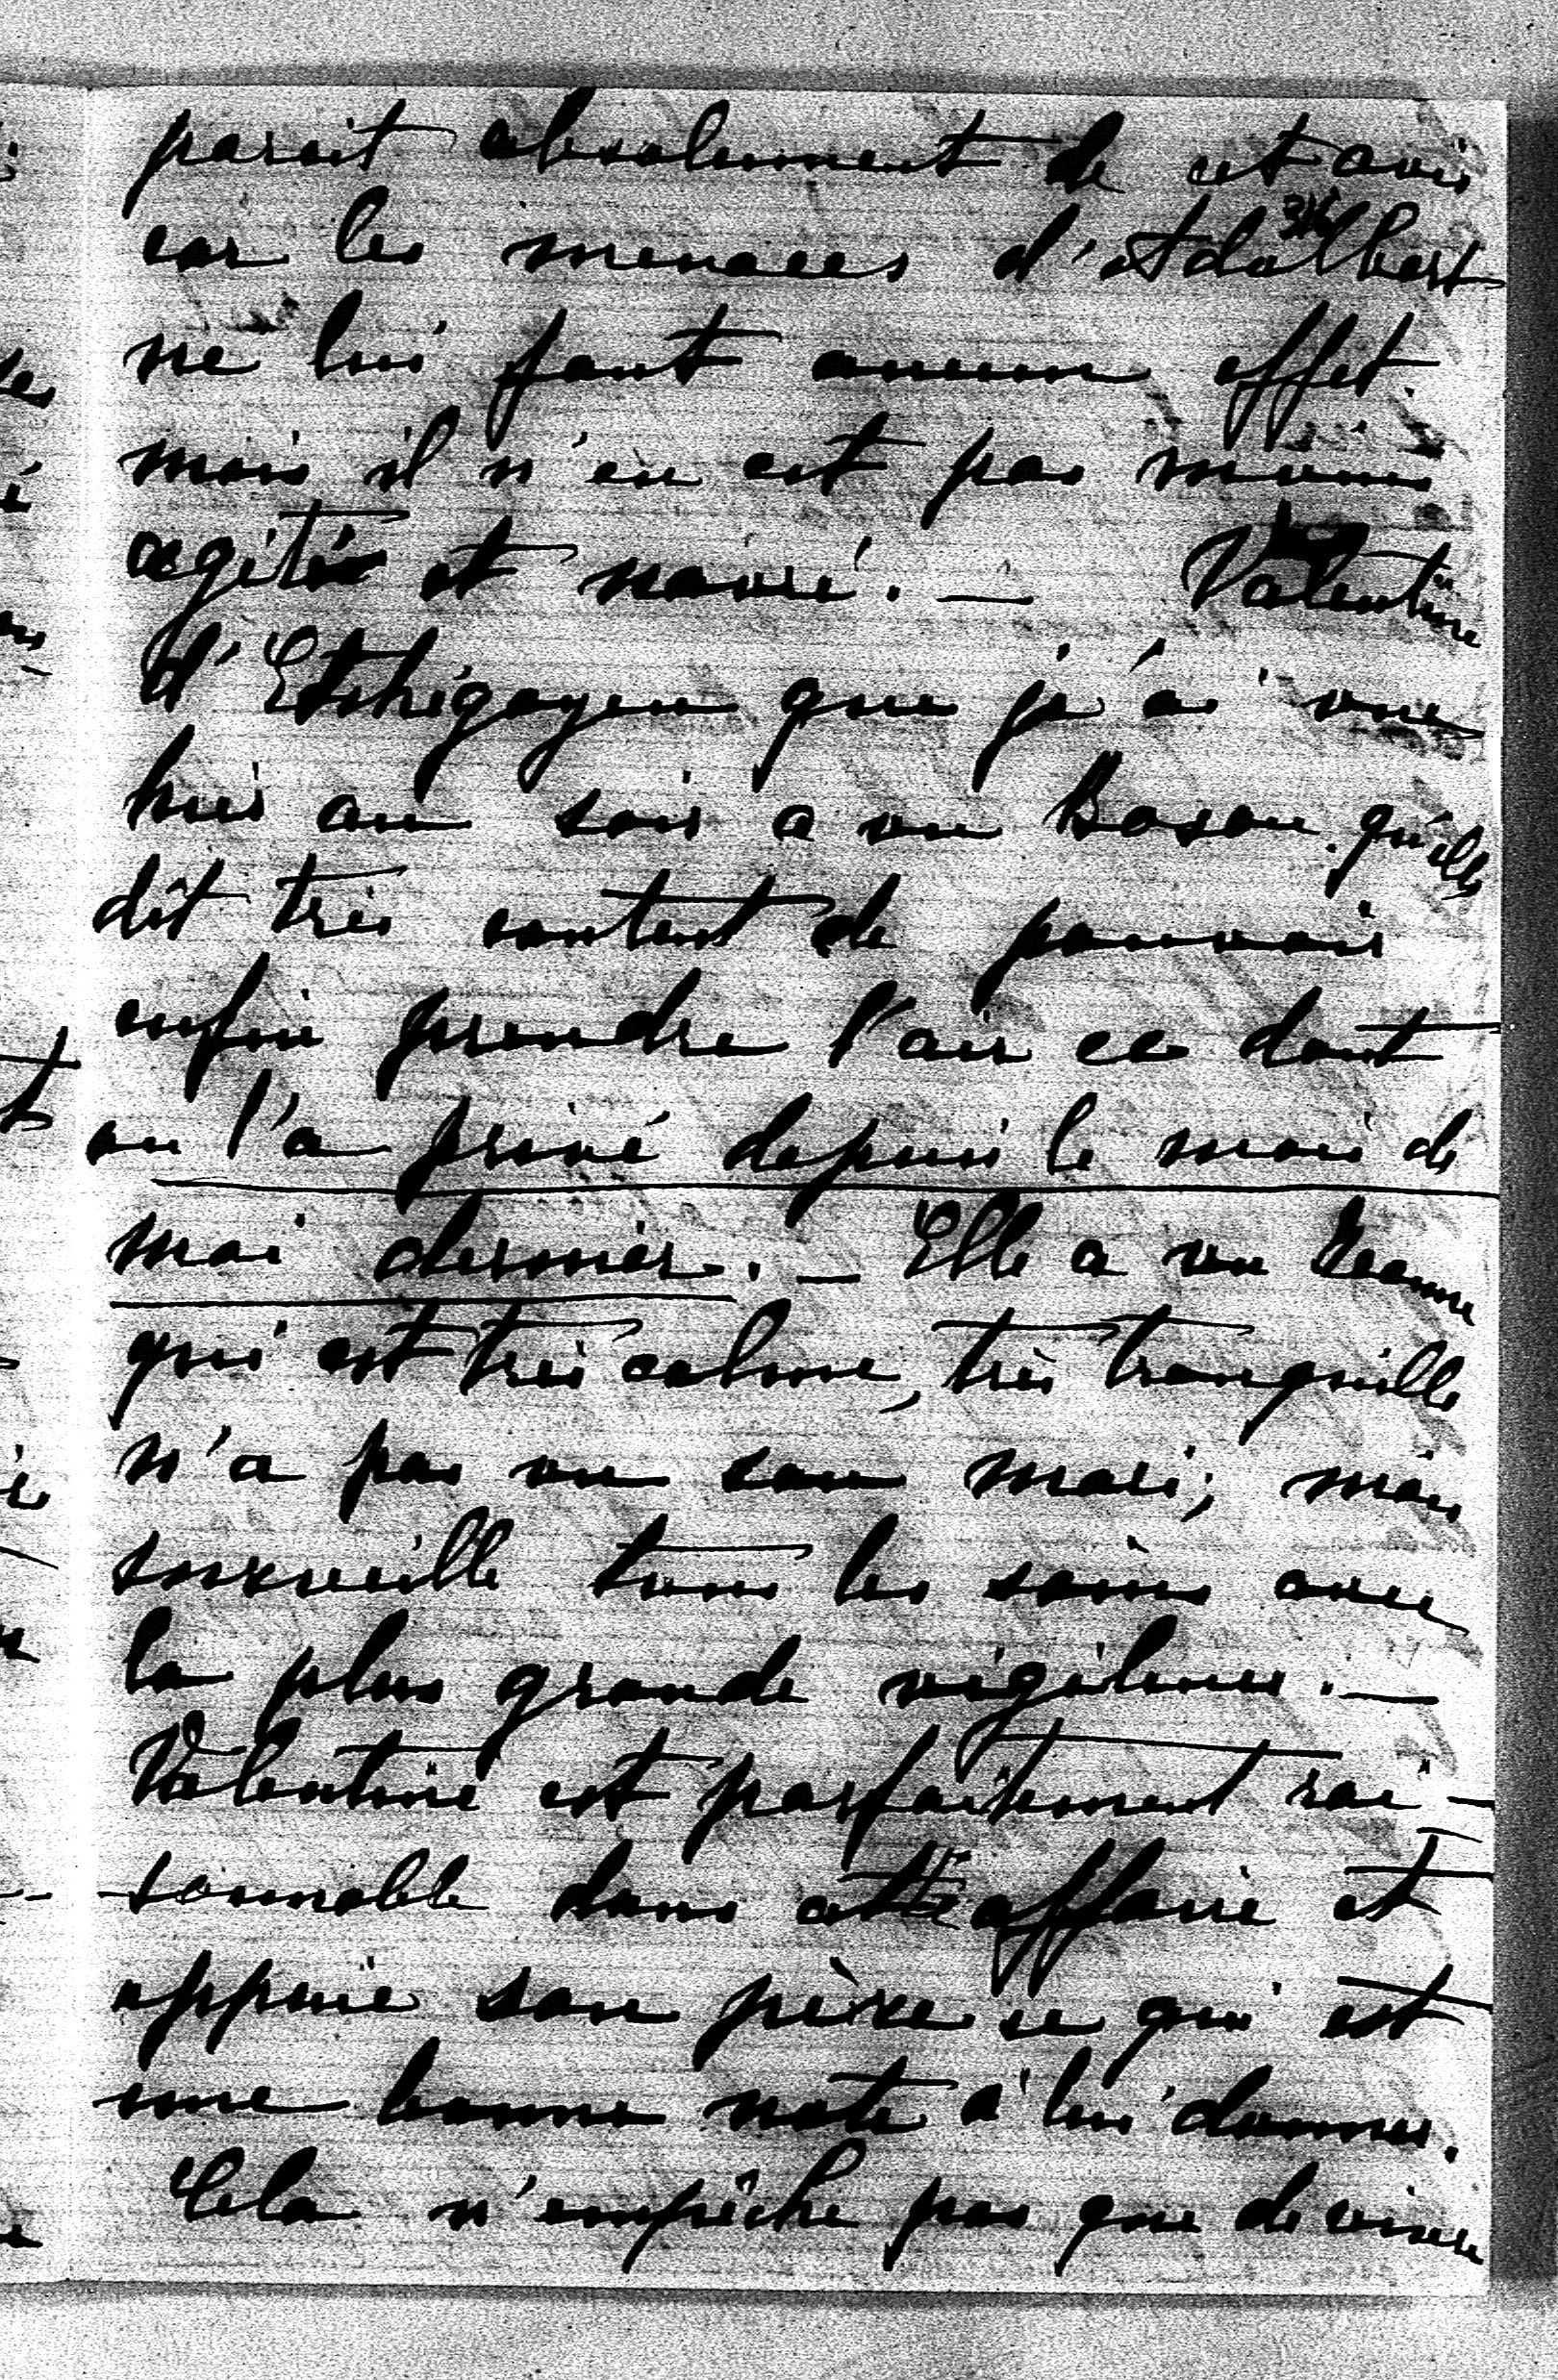 parait absolument de cet avis
car les menaces d'Adalbert
ne lui font aucun effet
mais il n'en est pas moins
agité et navré. — Valentine
d'Etchégoyen que j'ai vue
hier au soir a vu Boson qu'elle
dit très content de pouvoir
enfin prendre l'air ce dont
on l'a privé depuis le mois de
mai dernier. — Elle a vu Jeanne
qui est très calme, très tranquille
n'a pas vu son mari; mais
surveille tous les soins avec
la plus grande vigilance. —
Valentine est parfaitement rai-
sonnable dans cette affaire et
appuie son père ce qui est
une bonne note à lui donner.
Cela n'empêche pas que de vivre